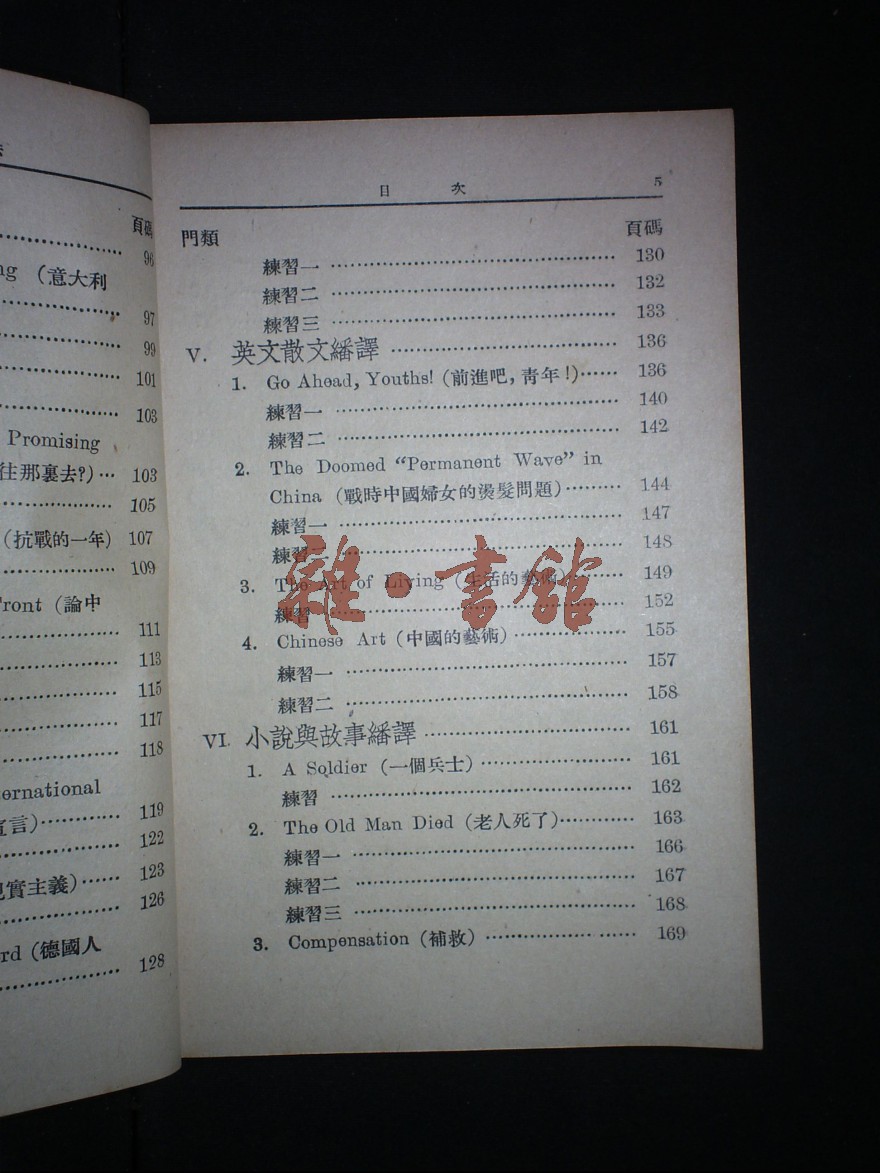 頁碼
96
ng (意大利
97
99
101
103
Promising
往那裏去?)… 103
105
(抗戰的一年) 107
109
Front (論中
111
113
115
117
118
ernational
宣言)………… 119
122
現實主義)…… 123
126
rd (德國人
128
目 次 5
門類 頁碼
練習一 ………………………………… 130
練習二 ………………………………… 132
練習三 ………………………………… 133
V. 英文散文繙譯 ………………………… 136
1. Go Ahead, Youths! (前進吧,青年!)…… 136
練習一 ………………………………… 140
練習二 ………………………………… 142
2. The Doomed “Permanent Wave” in
China (戰時中國婦女的燙髮問題)……… 144
練習一 ………………………………… 147
練習二 ………………………………… 148
3. The Art of Living (生活的藝術)……… 149
練習 ………………………………… 152
4. Chinese Art (中國的藝術)…………… 155
練習一 ………………………………… 157
練習二 ………………………………… 158
VI. 小說與故事繙譯 ……………………… 161
1. A Soldier (一個兵士)………………… 161
練習 ………………………………… 162
2. The Old Man Died (老人死了)………… 163
練習一 ………………………………… 166
練習二 ………………………………… 167
練習三 ………………………………… 168
3. Compensation (補救) ………………… 169
雜·書館